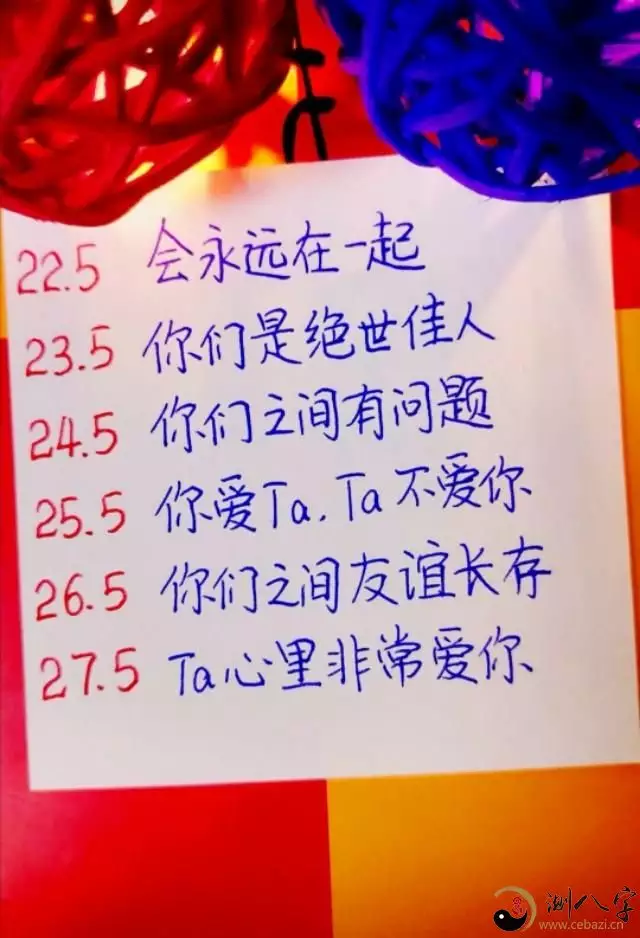 22.5 会永远在一起
23.5 你们是绝世佳人
24.5 你们之间有问题
25.5 你爱Ta.Ta不爱你
26.5 你们之间友谊长存
27.5 Ta心里非常爱你
测八字
www.cebazi.cn